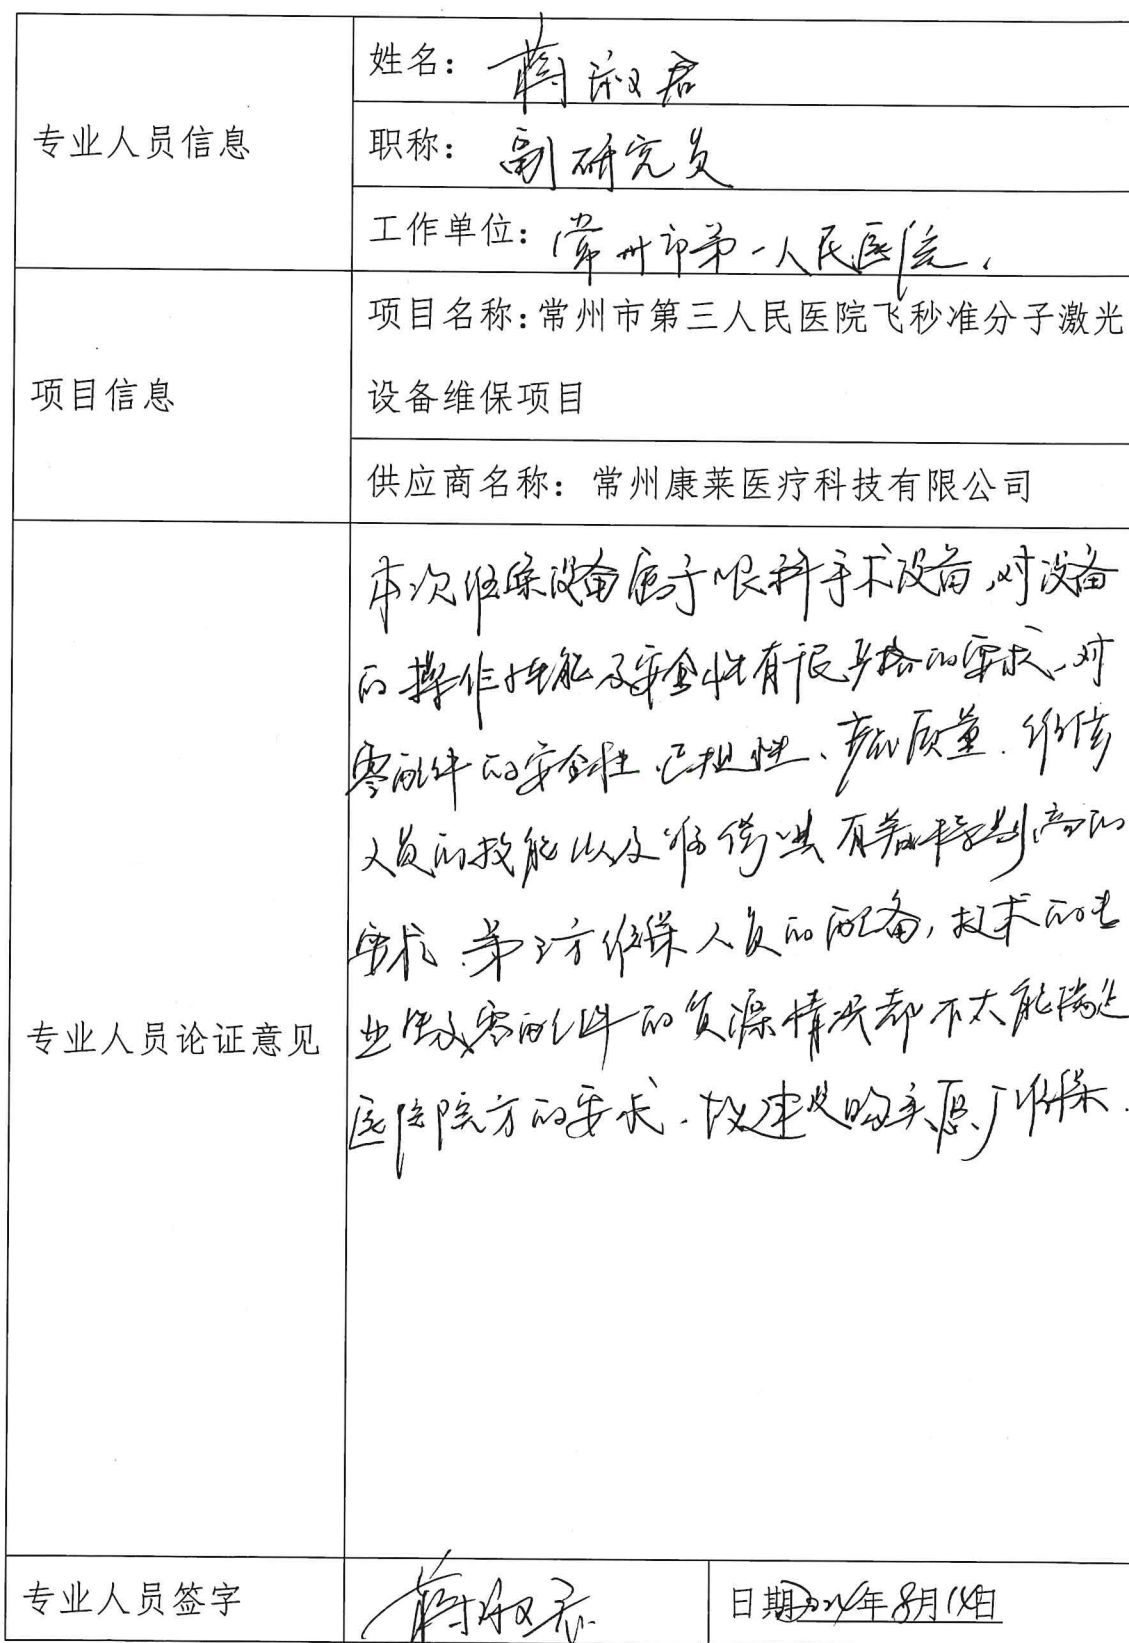 专业人员信息
姓名：蒋淑君
职称：副研究员
工作单位：常州市第一人民医院
项目信息
项目名称：常州市第三人民医院飞秒准分子激光
设备维保项目
供应商名称：常州康莱医疗科技有限公司
专业人员论证意见
本次维保设备属于眼科手术设备，对设备
的操作性能及安全性有很严格的要求、对
零配件的安全性、产品质量、维修
人员的技能以及有着特别高的
要求、第三方维保人员的配备，技术的专
业性及零配件的货源情况都不太能满足
医院院方的要求、故建议购买原厂维保.
专业人员签字
蒋淑君
日期2024年8月14日